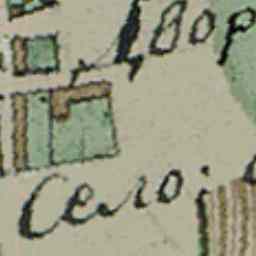 Двор
Село: